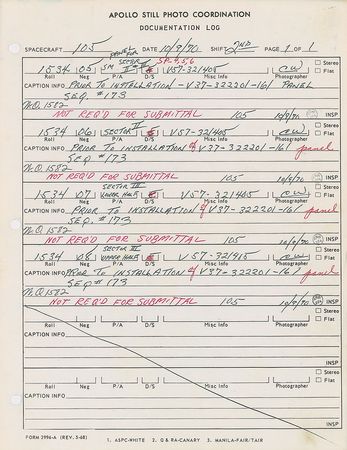 APOLLO STILL PHOTO COORDINATION
DOCUMENTATION LOG
SPACECRAFT 105 DATE 10/9/70 SHIFT 2ND PAGE 1 OF 1
PANEL FOR
SECTOR SP. 4, 5, 6
1534 05 SM I V57-32/405 CW Stereo
Roll Neg P/A D/S Misc Info Photographer Flat
CAPTION INFO PRIOR TO INSTALLATION - V37-322201-161 PANEL
SEQ. #173
M.Q. 1582
NOT REQ'D FOR SUBMITTAL 105 10/9/70 INSP
1534 06 SECTOR V57-32/405 CW Stereo
Roll Neg P/A D/S Misc Info Photographer Flat
CAPTION INFO PRIOR TO INSTALLATION of V37-322201-161 panel
SEQ #173
M.Q. 1582
NOT REQ'D FOR SUBMITTAL 105 10/9/70 INSP
SECTOR III
1534 07 UPPER HALF V57-32/405 CW Stereo
Roll Neg P/A D/S Misc Info Photographer Flat
CAPTION INFO PRIOR TO INSTALLATION of V37-322201-161 panel
SEQ. #173
M.Q. 1582
NOT REQ'D FOR SUBMITTAL 105 10/9/70 INSP
SECTOR III
1534 08 UPPER HALF V57-32/415 CW Stereo
Roll Neg P/A D/S Misc Info Photographer Flat
CAPTION INFO PRIOR TO INSTALLATION of V37-322201-161 panel
SEQ #173
M.Q. 1582
NOT REQ'D FOR SUBMITTAL 105 10/9/70 INSP
Stereo
Roll Neg P/A D/S Misc Info Photographer Flat
CAPTION INFO
INSP
Stereo
Roll Neg P/A D/S Misc Info Photographer Flat
CAPTION INFO
INSP
FORM 2996-A (REV. 5-68) 1. ASPC-WHITE 2. Q & RA-CANARY 3. MANILA-FAIR/TAIR